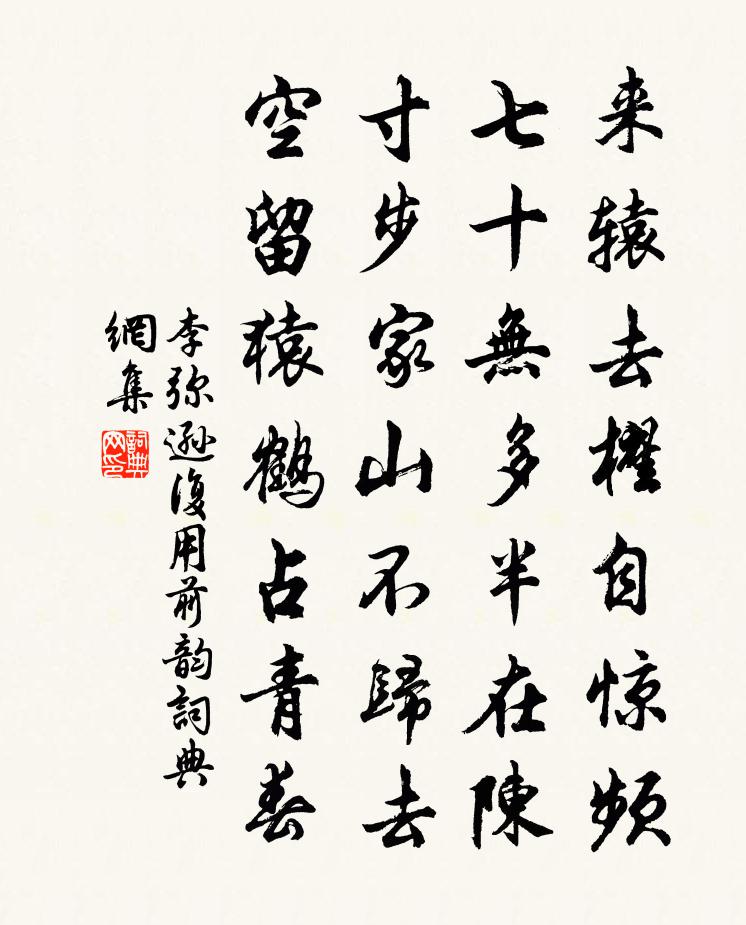 来辕去櫂自惊频
七十無多半在陳
寸步家山不歸去
空留猿鶴占青春
李弥遜復用前韵詞典
網集
詞典
网印